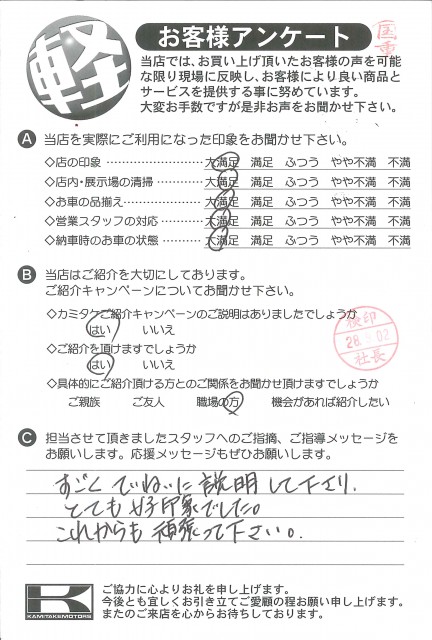 軽
お客様アンケート
当店では、お買い上げ頂いたお客様の声を可能
な限り現場に反映し、お客様により良い商品と
サービスを提供する事に努めています。
大変お手数ですが是非お声をお聞かせ下さい。
A 当店を実際にご利用になった印象をお聞かせ下さい。
◇店の印象 …………………… 大満足 満足 ふつう やや不満 不満
◇店内・展示場の清掃 ………… 大満足 満足 ふつう やや不満 不満
◇お車の品揃え ……………… 大満足 満足 ふつう やや不満 不満
◇営業スタッフの対応 ………… 大満足 満足 ふつう やや不満 不満
◇納車時のお車の状態 ………… 大満足 満足 ふつう やや不満 不満
B 当店はご紹介を大切にしております。
ご紹介キャンペーンについてお聞かせ下さい。
◇カミタケご紹介キャンペーンのご説明はありましたでしょうか
はい いいえ
◇ご紹介を頂けますでしょうか
はい いいえ
検印
社長
◇具体的にご紹介頂ける方とのご関係をお聞かせ頂けますでしょうか
ご親族 ご友人 職場の方 機会があれば紹介したい
C 担当させて頂きましたスタッフへのご指摘、ご指導メッセージを
お願いします。応援メッセージもぜひお願いします。
すごくていねいに説明して下さり、
とても好印象でした。
これからも頑張って下さい。
K
KAMITAKEMOTORS
ご協力に心よりお礼を申し上げます。
今後とも宜しくお引き立てご愛顧の程お願い申し上げます。
またのご来店を心からお待ちしております。